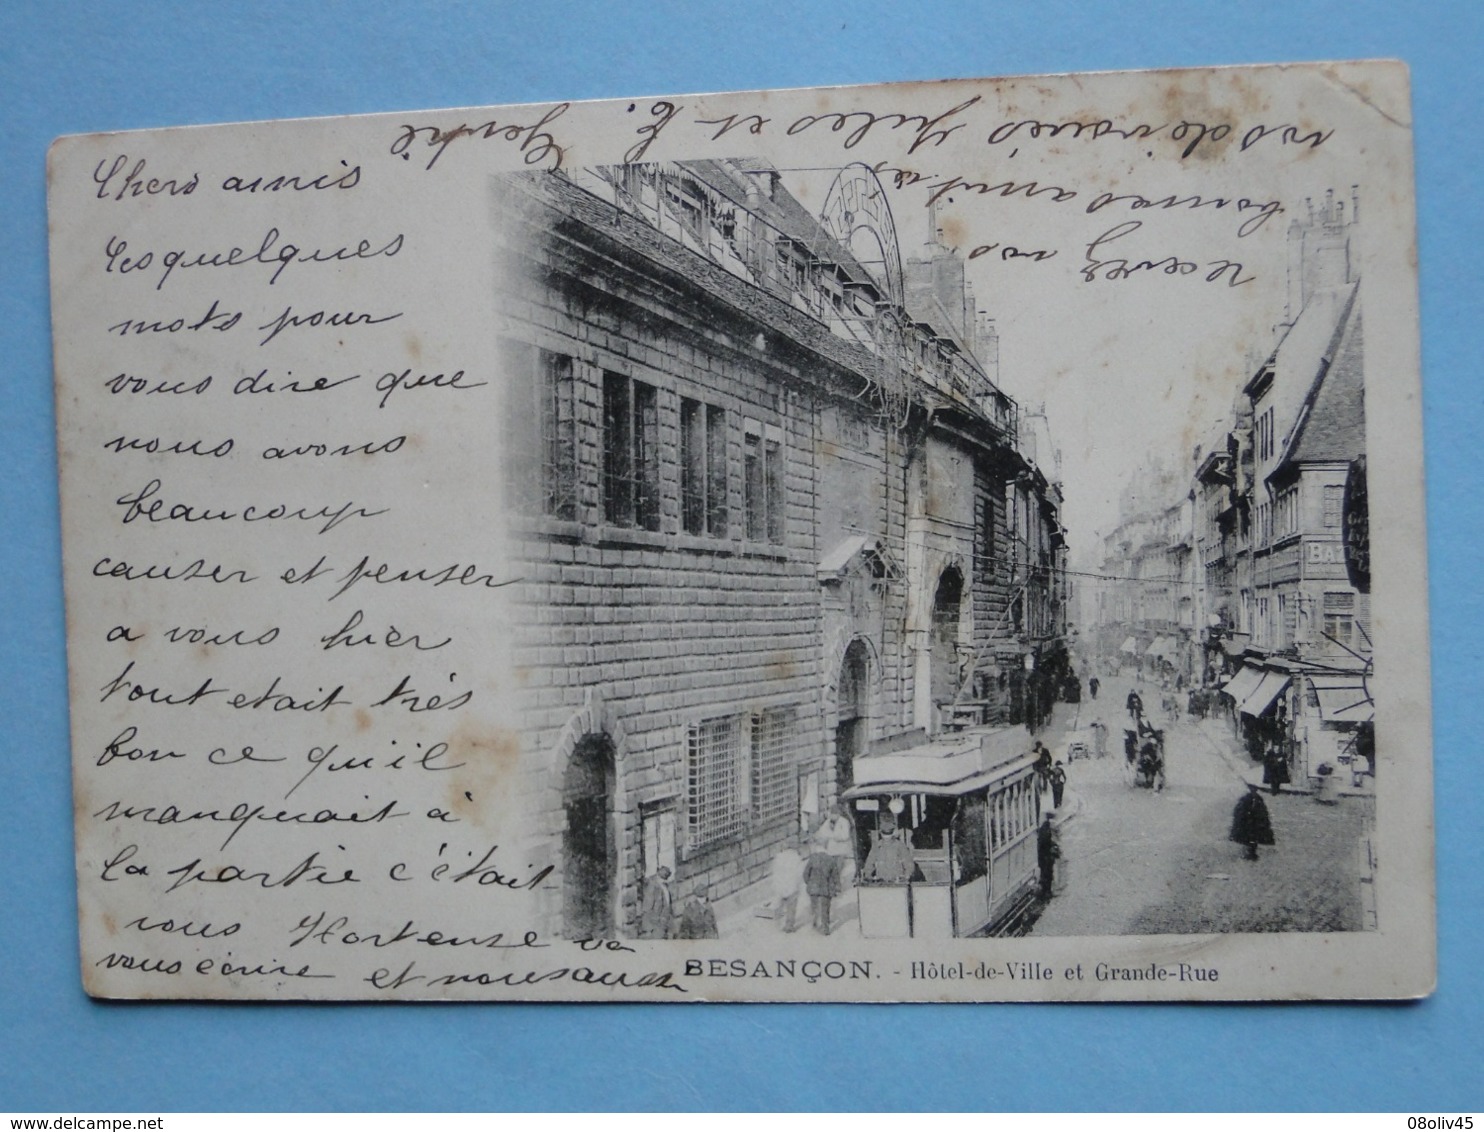 Chers amis
Ces quelques
mots pour
vous dire que
nous avons
beaucoup
causer et penser
a vous hier
tout etait très
bon ce qu'il
manquait à
la partie c'était
vous Hortense va
vous écrire et nous aussi
recevez nos
bonnes amitiés
nos devoirs Jules et E.
Gentil
CAFÉ
BAZ
BESANÇON. - Hôtel-de-Ville et Grande-Rue
delcampe.net
08oliv45